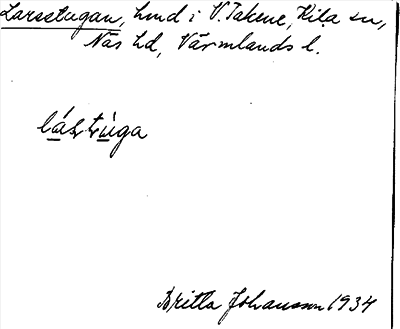 Larsstugan, hmd i V. Takene, Kila sn,
Näs hd, Värmlands l.
lás̠tùga
Britta Johansson 1934